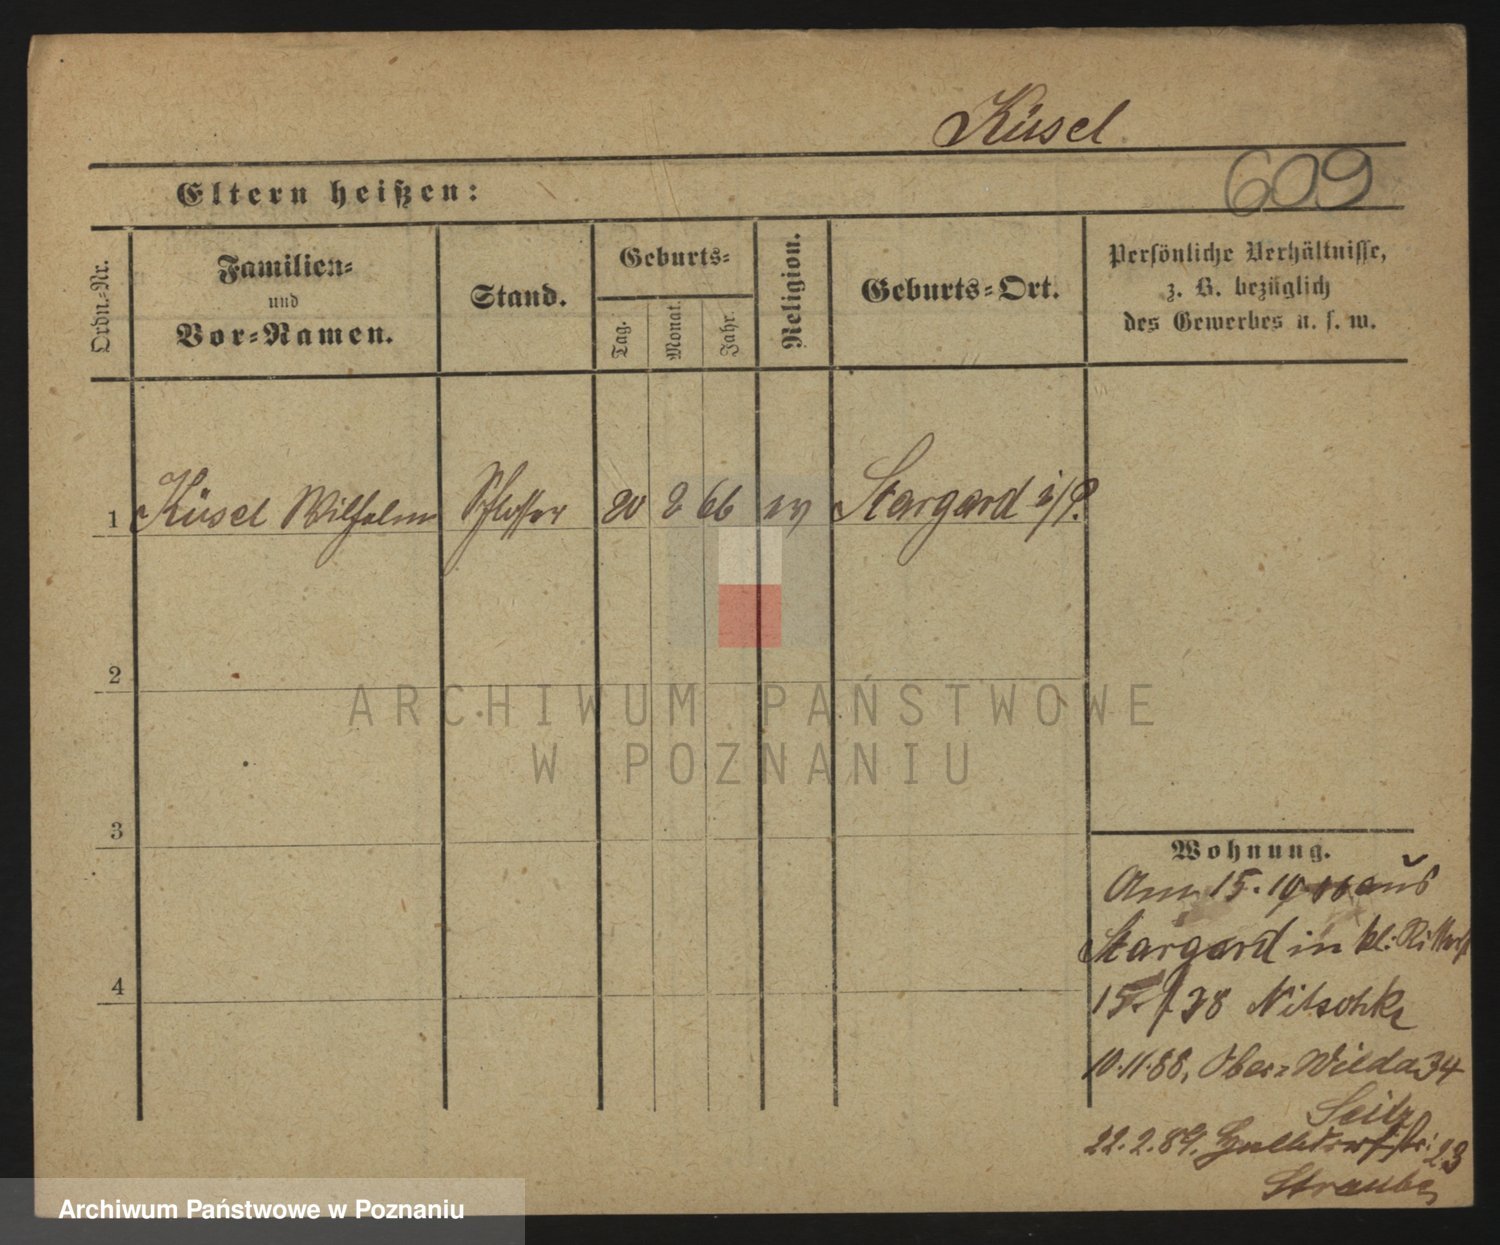 Küsel
609
Eltern heißen:
Ordn.-Nr.
Familien-
und
Vor-Namen.
Stand.
Geburts-
Tag.
Monat.
Jahr.
Religion.
Geburts-Ort.
Persönliche Verhältnisse,
z. B. bezüglich
des Gewerbes u. s. w.
1 Küsel Wilhelm Schlosser 20 2 66 ev Stargard i/P.
2
ARCHIWUM PAŃSTWOWE
W POZNANIU
3
Wohnung.
Am 15. 10 aus
Stargard in kl: Ritterst
4
15. 38 Nitschke
10.11.88, Ober-Wilda 34
Seitz
22.2.89. 23
Straube
Archiwum Państwowe w Poznaniu